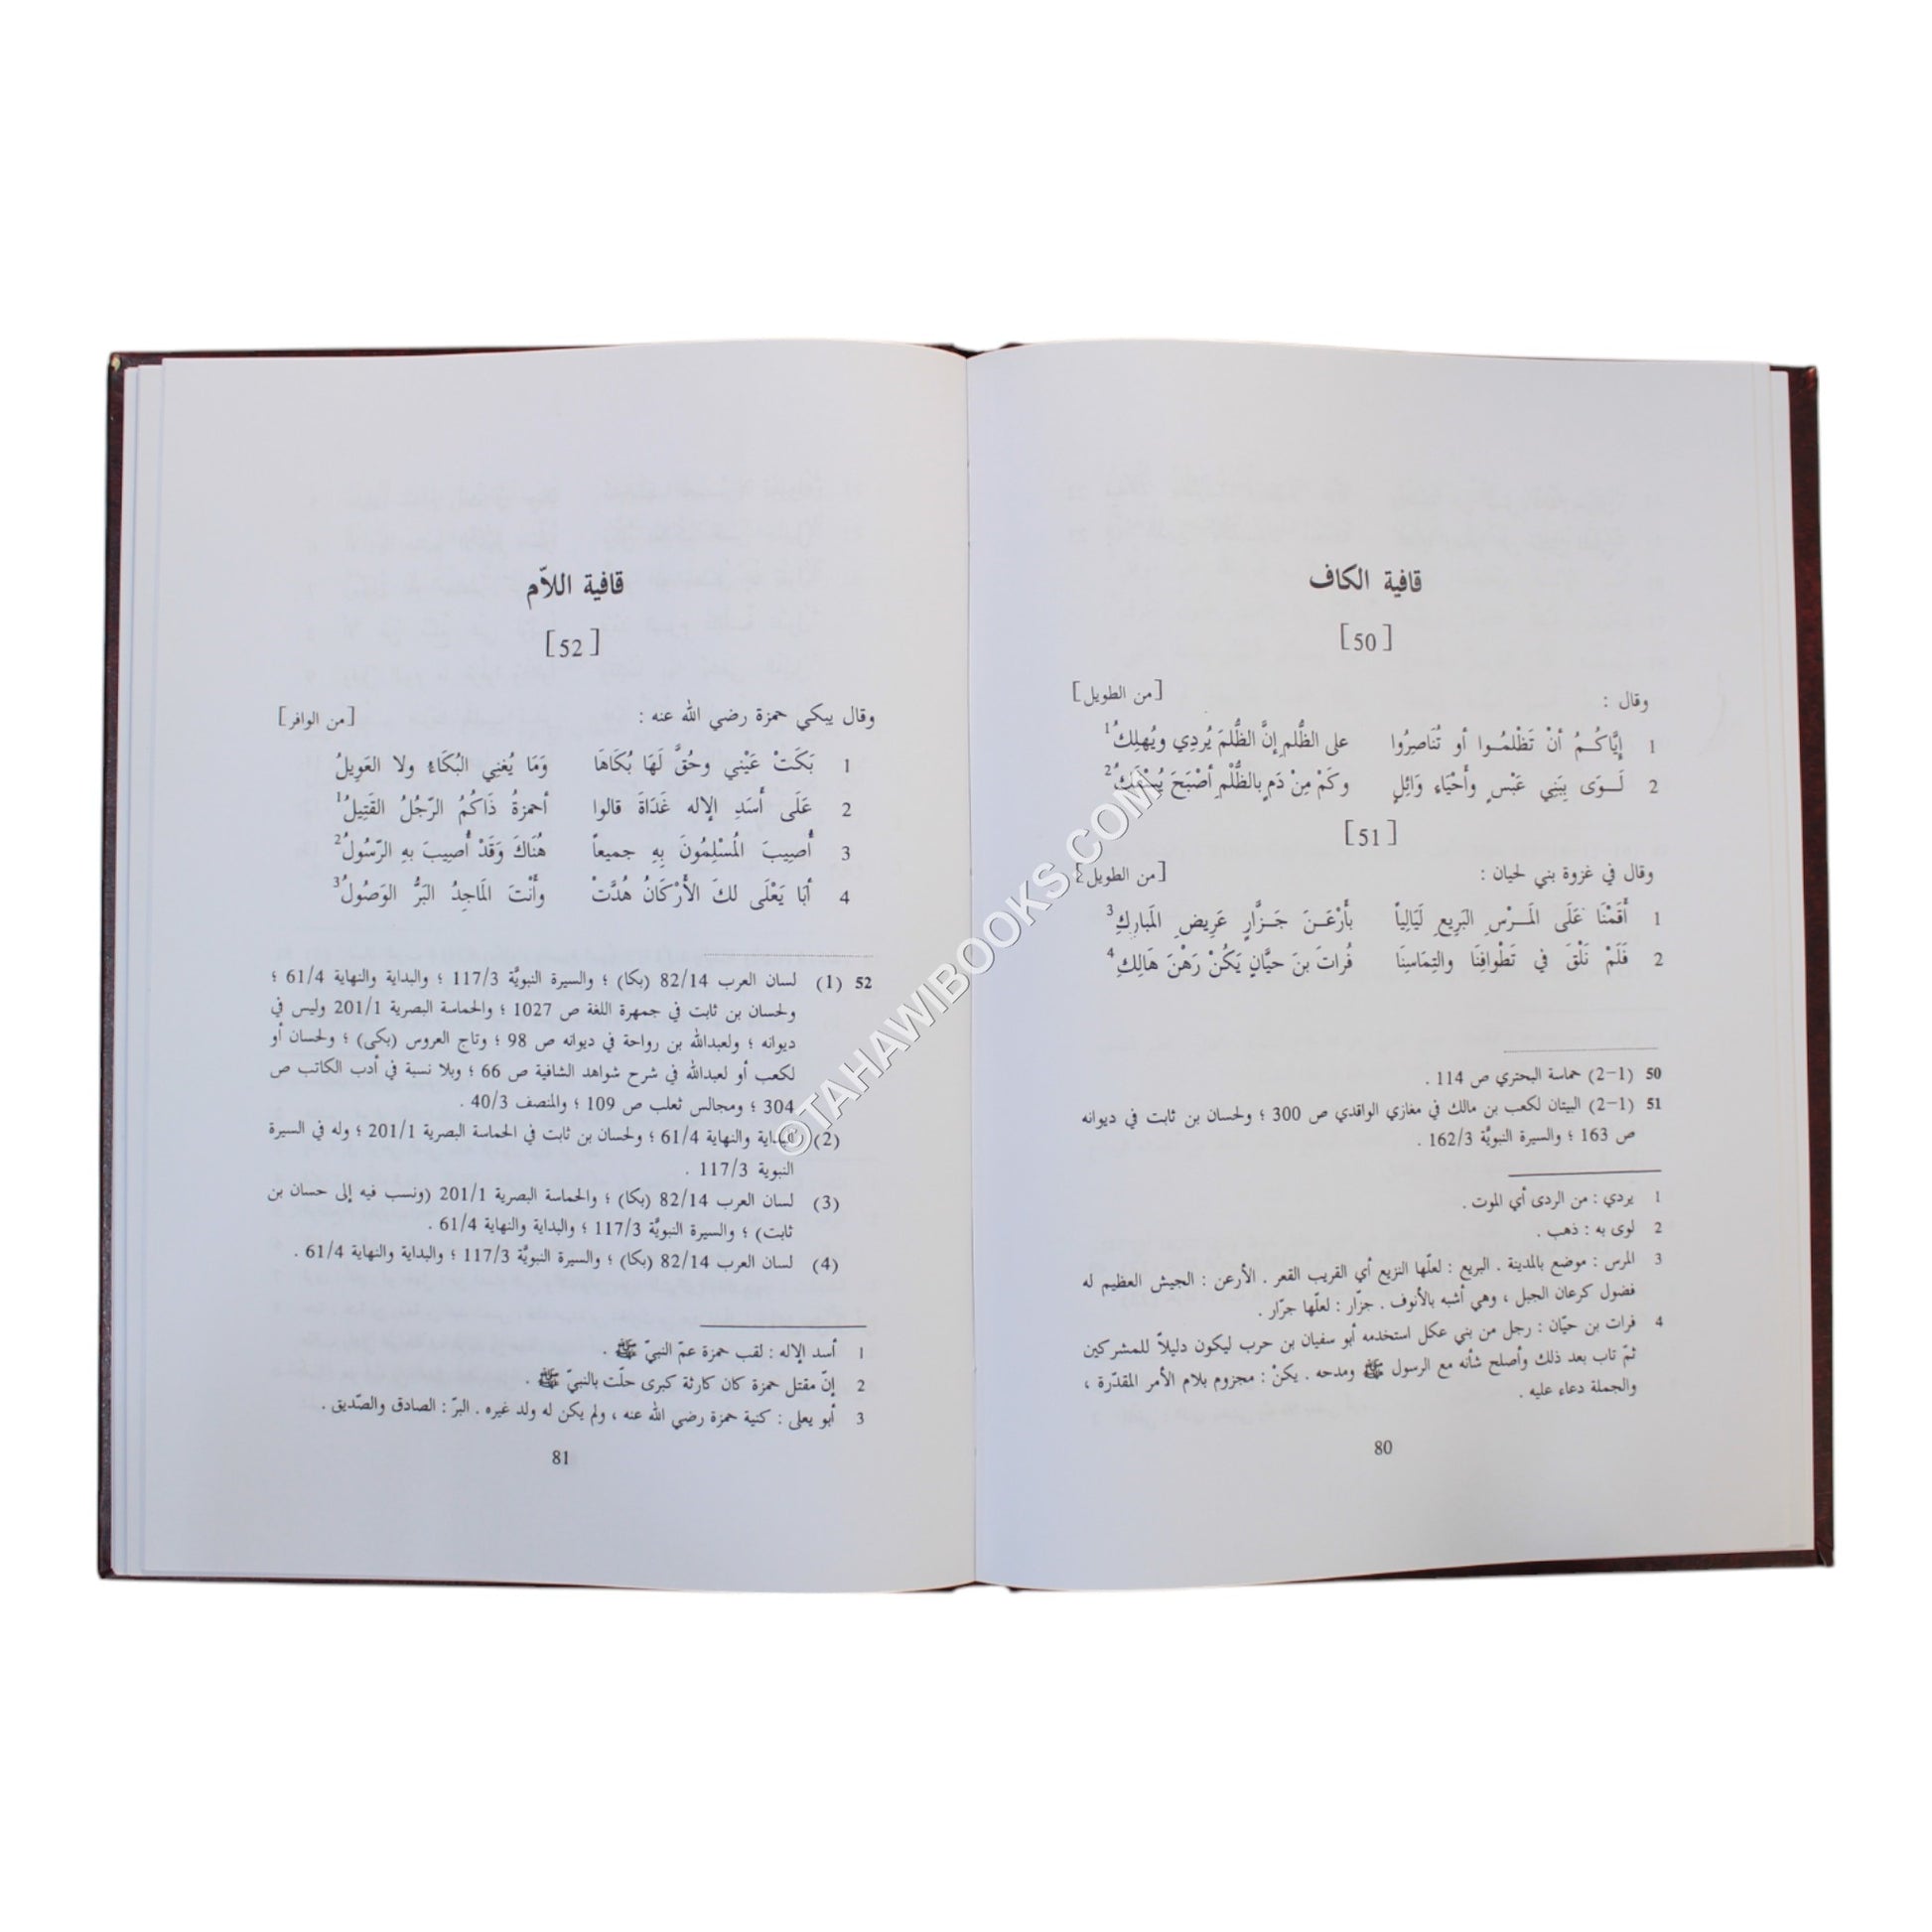 قافية الكاف
[50]
وقال : [من الطويل]
1 إِيَّاكُـــمُ أنْ تَظْلمُــوا أو تُنَاصِرُوا على الظُّلمِ إنَّ الظُّلمَ يُردِي ويُهلِكُ1
2 لَـــوَى بِبَنِي عَبْسٍ وأَحْيَاءِ وَائِلٍ وكَمْ مِنْ دَمٍ بالظُّلْمِ أصْبَحَ يُسْفَكُ2
[51]
وقال في غزوة بني لحيان : [من الطويل]
1 أَقَمْنَا عَلَى المَــرْسِ البَرِيعِ لَيَالِياً بأَرْعَــنَ جَــزَّارٍ عَرِيضِ المَبارِكِ3
2 فَلَمْ نَلْقَ في تَطْوافِنَا والتِمَاسِنَا فُراتَ بنَ حيَّانٍ يَكُنْ رَهْنَ هَالِكِ4
50 (1–2) حماسة البحتري ص 114 .
51 (1–2) البيتان لكعب بن مالك في مغازي الواقدي ص 300 ؛ ولحسان بن ثابت في ديوانه
ص 163 ؛ والسيرة النبويَّة 162/3 .
1 يردي : من الردى أي الموت .
2 لوى به : ذهب .
3 المرس : موضع بالمدينة . البريع : لعلّها النزيع أي القريب القعر . الأرعن : الجيش العظيم له
فضول كرعان الجبل ، وهي أشبه بالأنوف . جزّار : لعلّها جرّار .
4 فرات بن حيّان : رجل من بني عكل استخدمه أبو سفيان بن حرب ليكون دليلاً للمشركين
ثمّ تاب بعد ذلك وأصلح شأنه مع الرسول ﷺ ومدحه . يكنْ : مجزوم بلام الأمر المقدّرة ،
والجملة دعاء عليه .
80
قافية اللاّم
[52]
وقال يبكي حمزة رضي الله عنه : [من الوافر]
1 بَكَتْ عَيْني وحُقَّ لَهَا بُكَاهَا وَمَا يُغنِي البُكَاءُ ولا العَوِيلُ
2 عَلَى أَسَدِ الإله غَدَاةَ قالوا أحمزةُ ذَاكُمُ الرّجُلُ القَتِيلُ1
3 أُصِيبَ المُسْلِمُونَ بِهِ جميعاً هُنَاكَ وَقَدْ أُصيبَ بهِ الرّسُولُ2
4 أبَا يَعْلَى لكَ الأَرْكَانُ هُدَّتْ وأَنْتَ المَاجِدُ البَرُّ الوَصُولُ3
52 (1) لسان العرب 82/14 (بكا) ؛ والسيرة النبويَّة 117/3 ؛ والبداية والنهاية 61/4 ؛
ولحسان بن ثابت في جمهرة اللغة ص 1027 ؛ والحماسة البصرية 201/1 وليس في
ديوانه ؛ ولعبدالله بن رواحة في ديوانه ص 98 ؛ وتاج العروس (بكى) ؛ ولحسان أو
لكعب أو لعبدالله في شرح شواهد الشافية ص 66 ؛ وبلا نسبة في أدب الكاتب ص
304 ؛ ومجالس ثعلب ص 109 ؛ والمنصف 40/3 .
(2) البداية والنهاية 61/4 ؛ ولحسان بن ثابت في الحماسة البصرية 201/1 ؛ وله في السيرة
النبوية 117/3 .
(3) لسان العرب 82/14 (بكا) ؛ والحماسة البصرية 201/1 (ونسب فيه إلى حسان بن
ثابت) ؛ والسيرة النبويَّة 117/3 ؛ والبداية والنهاية 61/4 .
(4) لسان العرب 82/14 (بكا) ؛ والسيرة النبويَّة 117/3 ؛ والبداية والنهاية 61/4 .
1 أسد الإله : لقب حمزة عمّ النبيّ ﷺ .
2 إنّ مقتل حمزة كان كارثة كبرى حلّت بالنبيّ ﷺ .
3 أبو يعلى : كنية حمزة رضي الله عنه ، ولم يكن له ولد غيره . البرّ : الصادق والصّديق .
81
©TAHAWIBOOKS.COM